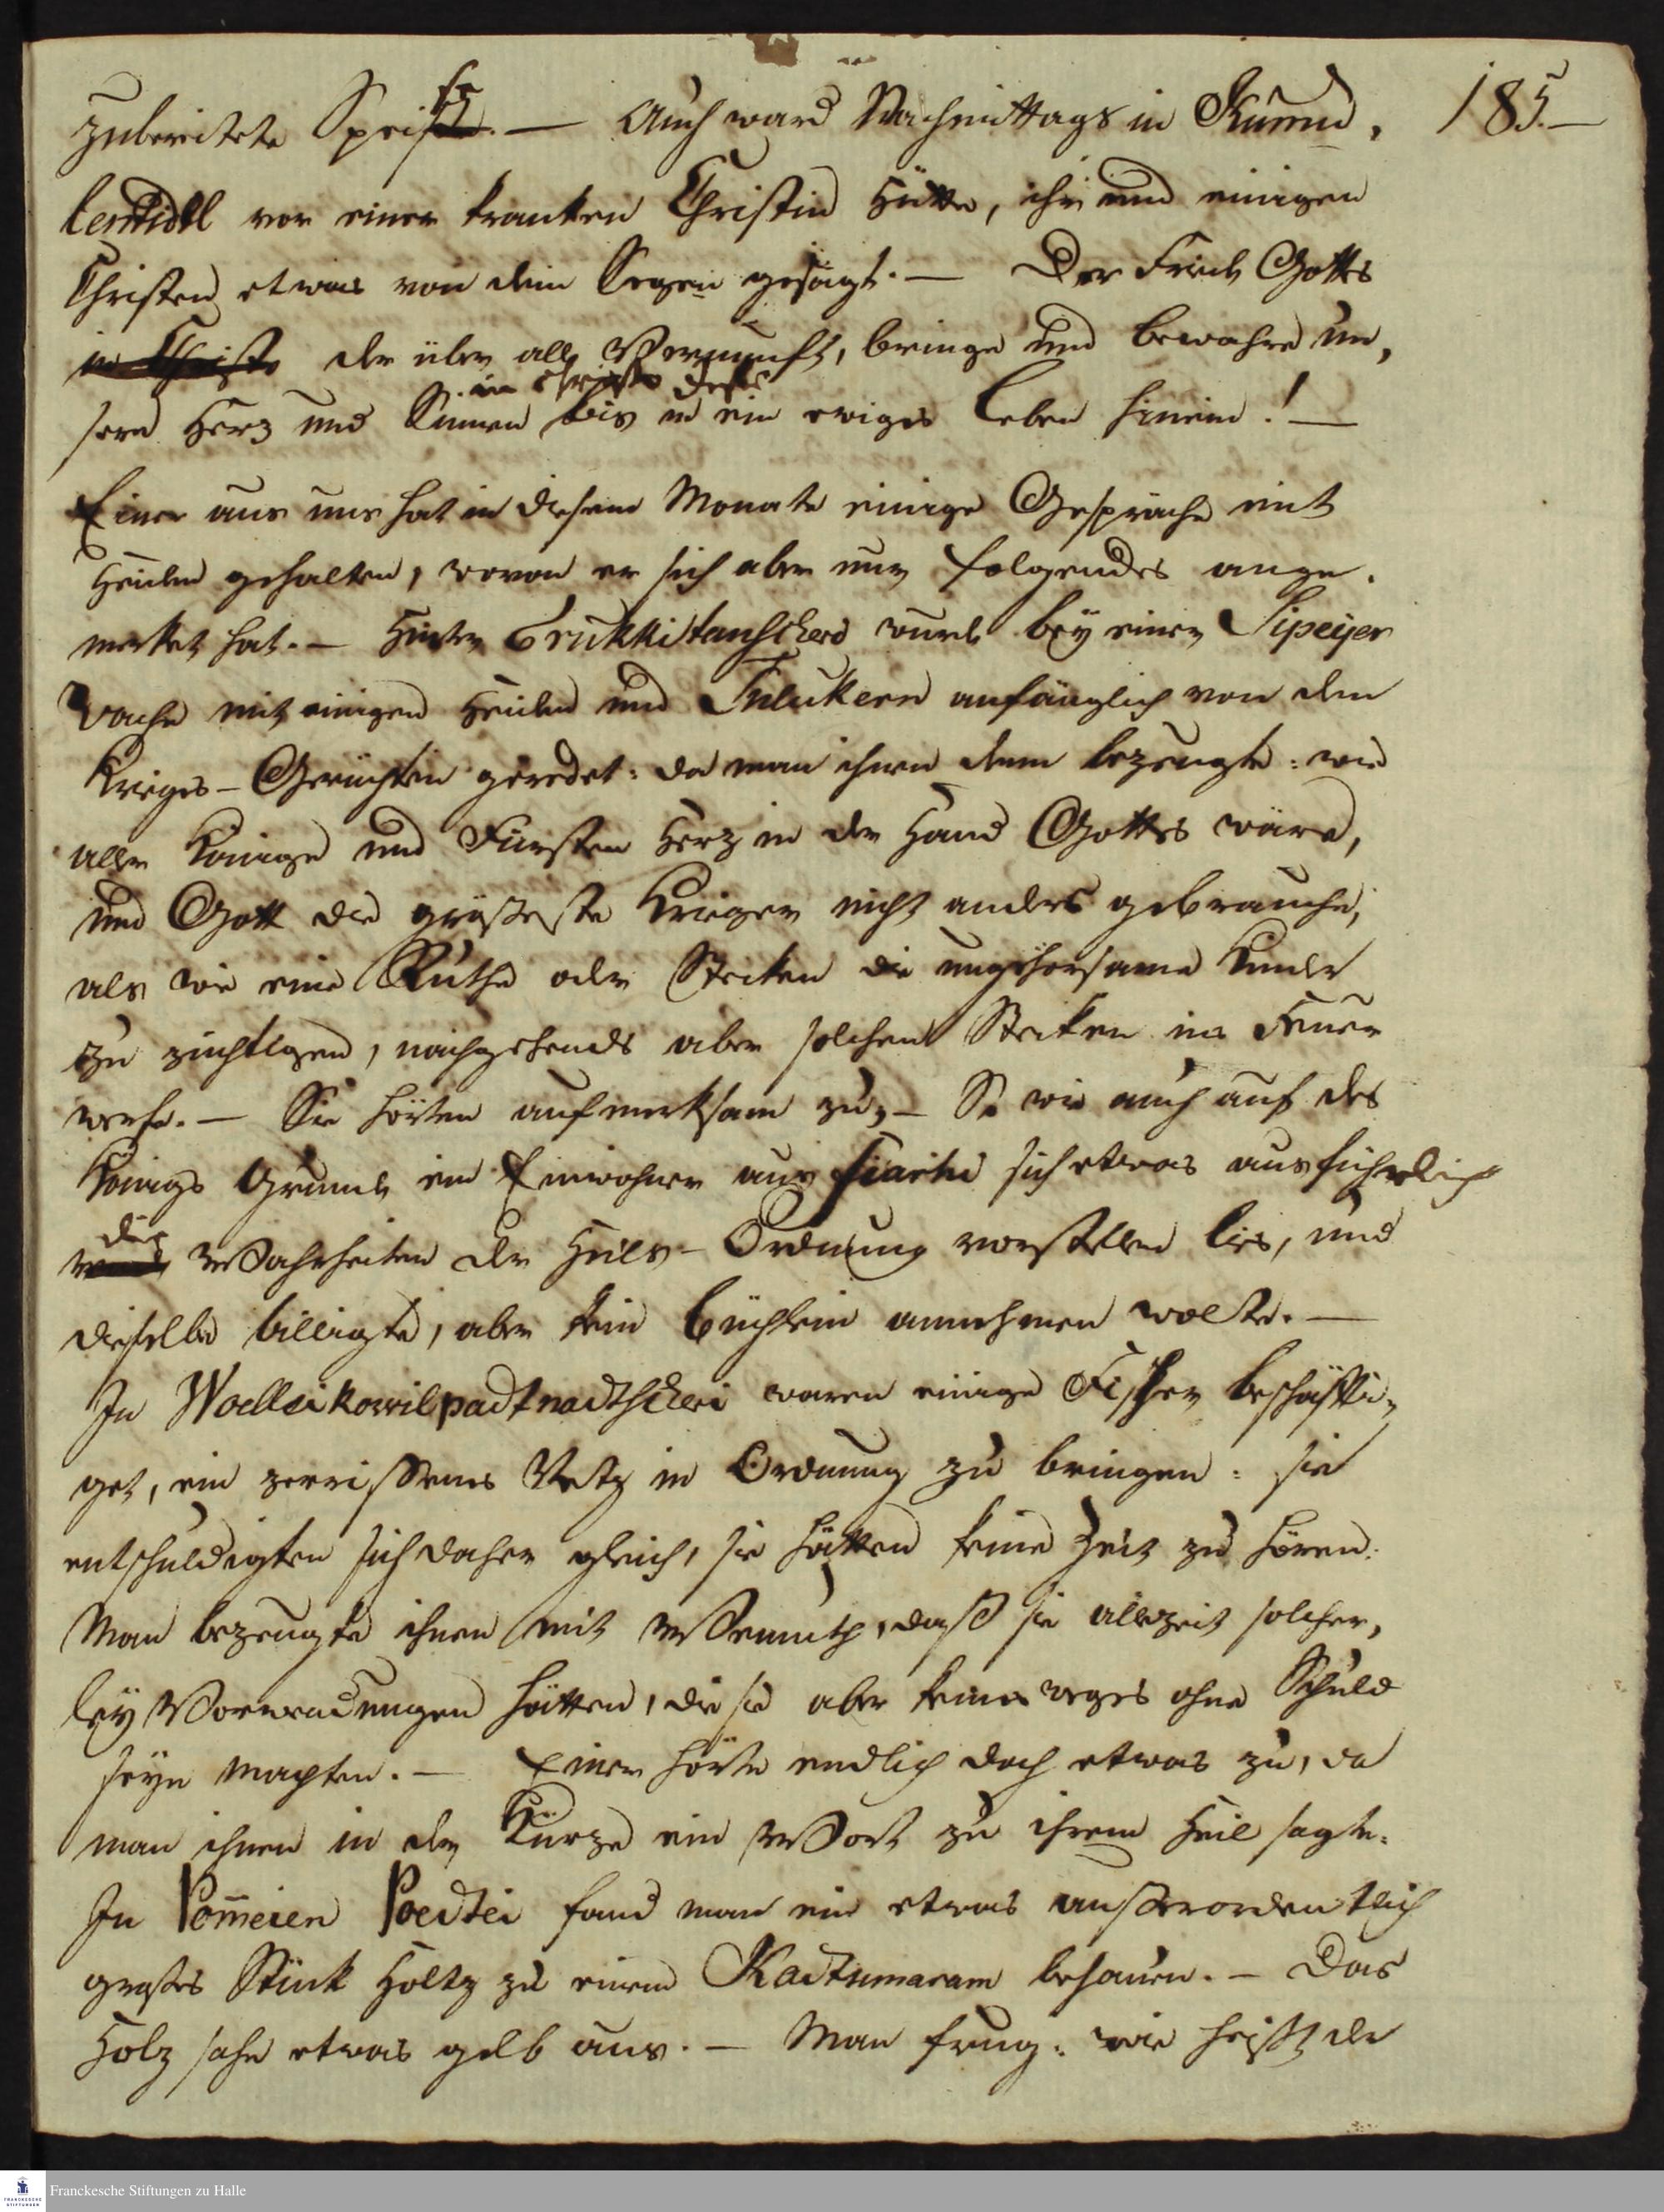 185.
zubereitete Speise. — Auch ward Nachmittags in Kumm,
lentidel vor einer kranken Christin Hütte, ihr und einigen
Christen etwas von dem Segen gesagt. — Der Friede Gottes
in Christo der über alle Vernunft, bringe und bewahre un,
in Christo Jesu
sere Herz und Sinnen bis in ein ewiges Leben hinein! —
Einer aus uns hat in diesem Monate einige Gespräche mit
Heiden gehalten, wovon er sich aber nur folgendes ange,
merket hat. — Hinter Erukkitanscheri wurde bey einer Sipeyer
Wache mit einigen Heiden und Tulukern anfänglich von den
Krieges-Gerüchten geredet: da man ihnen denn bezeugte: wie
aller Könige und Fürsten Herz in der Hand Gottes wäre,
und Gott die grösseste Krieger nicht anders gebrauche,
als wie eine Ruthe oder Stecken die ungehorsame Kinder
zu züchtigen, nachgehends aber solchen Stecken ins Feuer
werfe. — Sie hörten aufmerksam zu, — So wie auch auf des
Königs Grunde ein Einwohner aus sich etwas ausführlich
die Wahrheiten der Heils-Ordnung vorstellen lies, und
dieselbe billigte, aber kein Büchlein annehmen wolte. —
In Woelleikowilpadtnadtscheri waren einige Fischer beschäfti,
get, ein zerrissenes Netz in Ordnung zu bringen: sie
entschuldigten sich daher gleich, sie hätten keine Zeit zu hören:
Man bezeugte ihnen mit Wehmuth, daß sie allezeit solcher,
ley Vorwendungen hätten, die sie aber keines weges ohne Schuld
seyn machten. — Einer hörte endlich doch etwas zu, da
man ihnen in der Kürze ein Wort zu ihrem Heil sagte.
In Pom̅eien Poedtei fand man ein etwas ausserordentlich
grosses Stück Holtz zu einem Kadtumaram behauen. — Das
Holz sahe etwas gelb aus. — Man frug: wie heißt der
Franckesche Stiftungen zu Halle